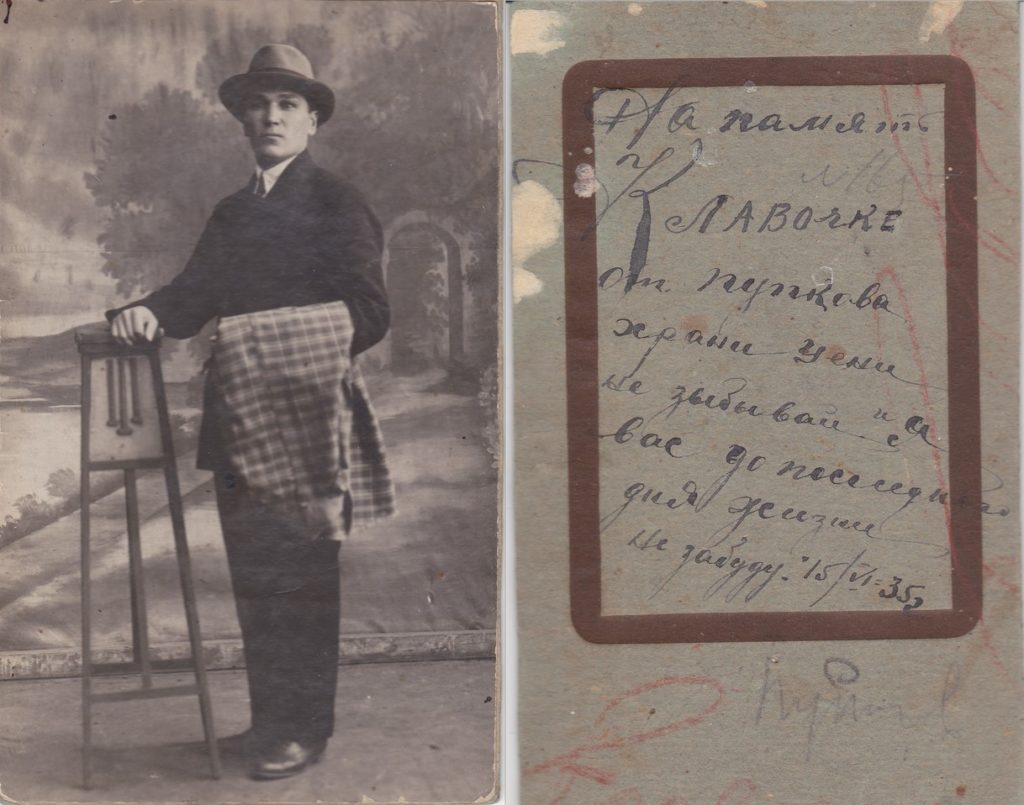 На память
Клавочке
от Пупкова
храни цени
не зыбывай и я
вас до последнего
дня жизни
не забуду. 15/VI-35г